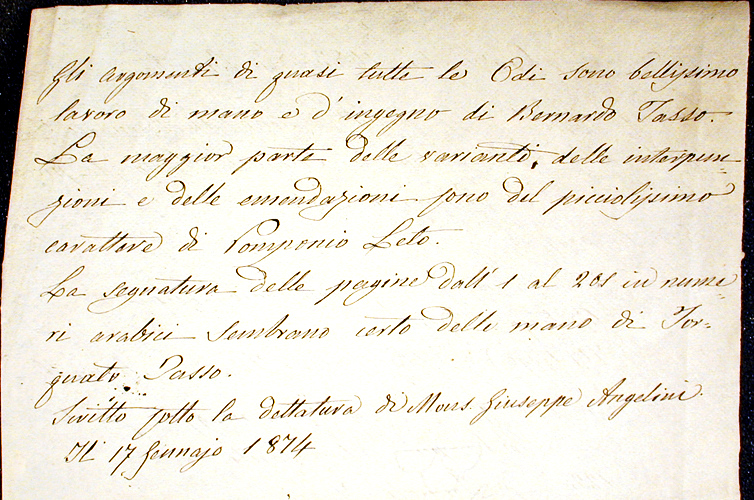 Gli argomenti di quasi tutte le Odi sono bellissimo
lavoro di mano e d' ingegno di Bernardo Tasso.
La maggior parte delle varianti, delle interpun=
zioni e delle emendazioni sono del picciolissimo
carattere di Pomponio Leto.
La segnatura delle pagine dall' 1 al 201 in nume=
ri arabici sembrano certo delle mano di Tor=
quato Tasso.
Scritto sotto la dettatura di Mons. Giuseppe Angelini.
Il 17 Gennajo 1874